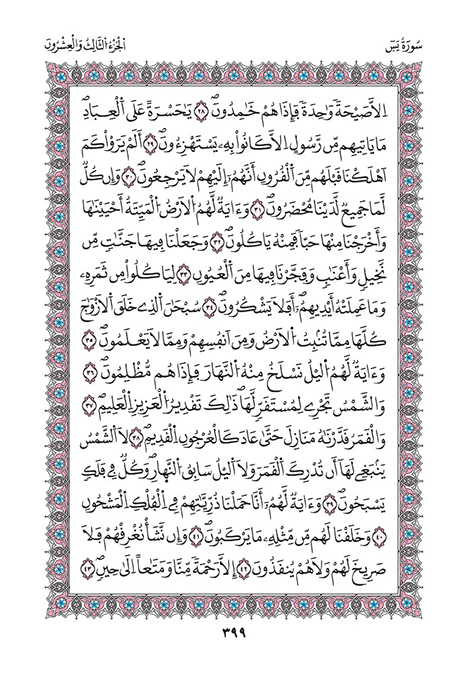 سُورَةُ يَسِٓ
الجُزْءُ الثَّالِثُ وَالْعِشْرُونَ
اِلَّا صَيْحَةً وَٰحِدَةً فَإِذَا هُمْ خَٰمِدُونَۖ ٢٨ يَٰحَسْرَةً عَلَى اَ۬لْعِبَادِۖ
مَا يَاتِيهِم مِّن رَّسُولٍ اِلَّا كَانُواْ بِهِۦ يَسْتَهْزِءُونَۖ ٢٩ أَلَمْ يَرَوْاْ كَمَ
اَهْلَكْنَا قَبْلَهُم مِّنَ اَ۬لْقُرُونِ أَنَّهُمُۥٓ إِلَيْهِمْ لَا يَرْجِعُونَۖ ٣٠ وَإِن كُلّٞ
لَّمَا جَمِيعٞ لَّدَيْنَا مُحْضَرُونَۖ ٣١ وَءَايَةٞ لَّهُمُ اُ۬لَارْضُ اُ۬لْمَيِّتَةُ أَحْيَيْنَٰهَا
وَأَخْرَجْنَا مِنْهَا حَبّاٗ فَمِنْهُ يَاكُلُونَۖ ٣٢ وَجَعَلْنَا فِيهَا جَنَّٰتٖ مِّن
نَّخِيلٖ وَأَعْنَٰبٖ وَفَجَّرْنَا فِيهَا مِنَ اَ۬لْعُيُونِ ٣٣ لِيَاكُلُواْ مِن ثَمَرِهِۦ
وَمَا عَمِلَتْهُ أَيْدِيهِمُۥٓۖ أَفَلَا يَشْكُرُونَۖ ٣٤ سُبْحَٰنَ اَ۬لذِے خَلَقَ اَ۬لَازْوَٰجَ
كُلَّهَا مِمَّا تُنۢبِتُ اُ۬لَارْضُ وَمِنَ اَنفُسِهِمْ وَمِمَّا لَا يَعْلَمُونَۖ ٣٥
وَءَايَةٞ لَّهُمُ اُ۬ليْلُ نَسْلَخُ مِنْهُ اُ۬لنَّهَارَ فَإِذَا هُم مُّظْلِمُونَۖ ٣٦
وَالشَّمْسُ تَجْرِے لِمُسْتَقَرّٖ لَّهَاۖ ذَٰلِكَ تَقْدِيرُ اُ۬لْعَزِيزِ اِ۬لْعَلِيمِۖ ٣٧
وَالْقَمَرُ قَدَّرْنَٰهُ مَنَازِلَ حَتَّىٰ عَادَ كَالْعُرْجُونِ اِ۬لْقَدِيمِۖ ٣٨ لَا اَ۬لشَّمْسُ
يَنۢبَغِے لَهَآ أَن تُدْرِكَ اَ۬لْقَمَرَ وَلَا اَ۬ليْلُ سَابِقُ اُ۬لنَّهَارِۖ وَكُلّٞ فِے فَلَكٖ
يَسْبَحُونَۖ ٣٩ وَءَايَةٞ لَّهُمُۥٓ أَنَّا حَمَلْنَا ذُرِّيَّٰتِهِمْ فِے اِ۬لْفُلْكِ اِ۬لْمَشْحُونِ
٤٠ وَخَلَقْنَا لَهُم مِّن مِّثْلِهِۦ مَا يَرْكَبُونَۖ ٤١ وَإِن نَّشَأْ نُغْرِقْهُمْ فَلَا
صَرِيخَ لَهُمْ وَلَا هُمْ يُنقَذُونَ ٤٢ إِلَّا رَحْمَةٗ مِّنَّا وَمَتَٰعاً اِلَىٰ حِينٖۖ ٤٣
٣٩٩